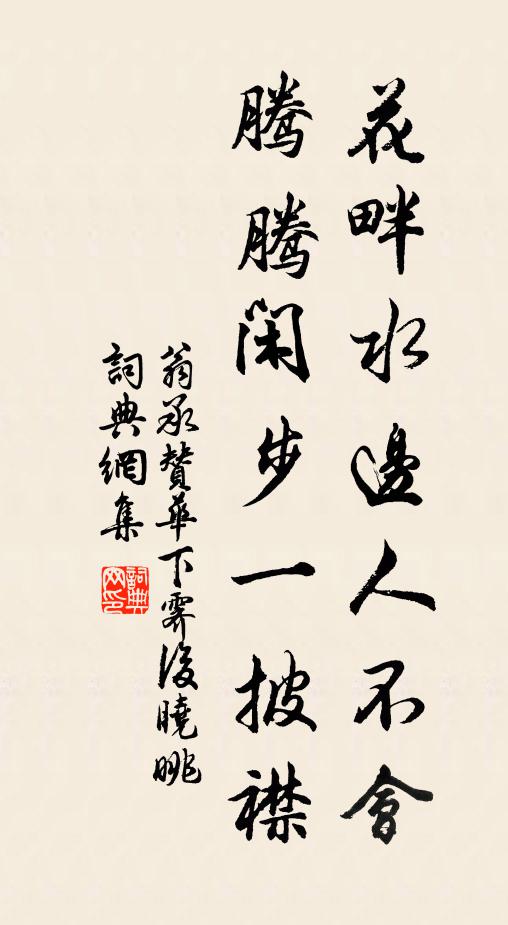 花畔水邊人不會
騰騰閑步一披襟
翁承贊華下霽後曉眺
詞典網集
詞典网印